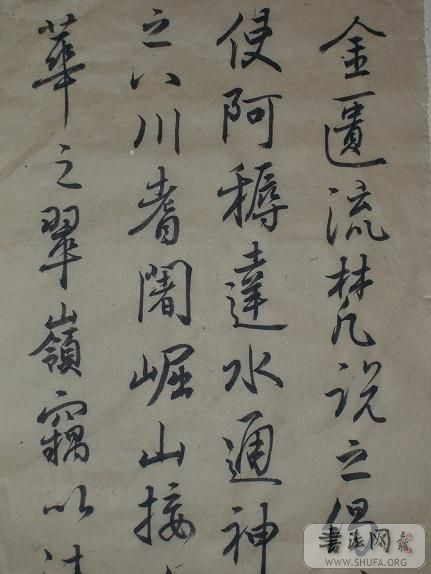 金匱流梵說之偈
使阿耨達水通神
之八川耆闍崛山接
華之翠嶺竊以法
書法网
WWW.SHUFA.ORG